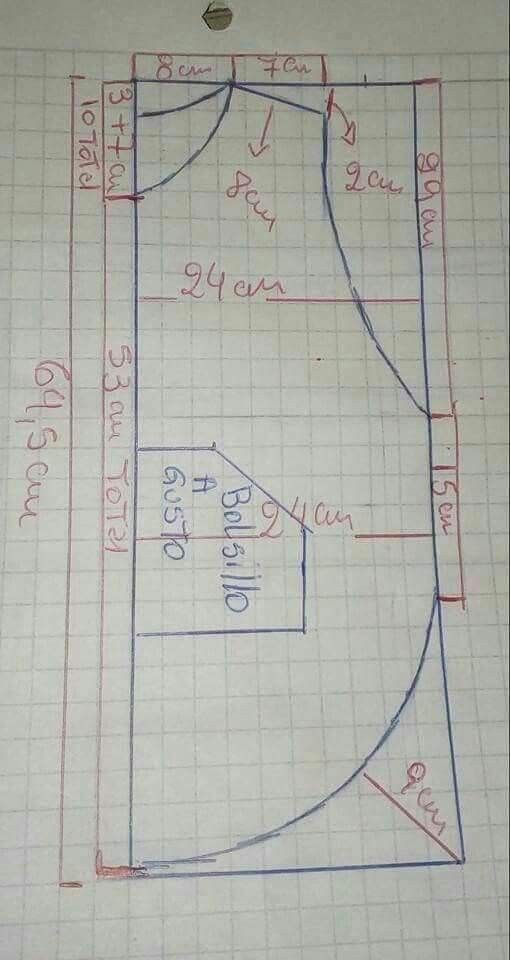 8cm
7cm
3+7cm
10 TOTAL
8cm
2cm
24cm
53cm TOTAL
64,5cm
15cm
24cm
Bolsillo
A
GUSTO
9cm